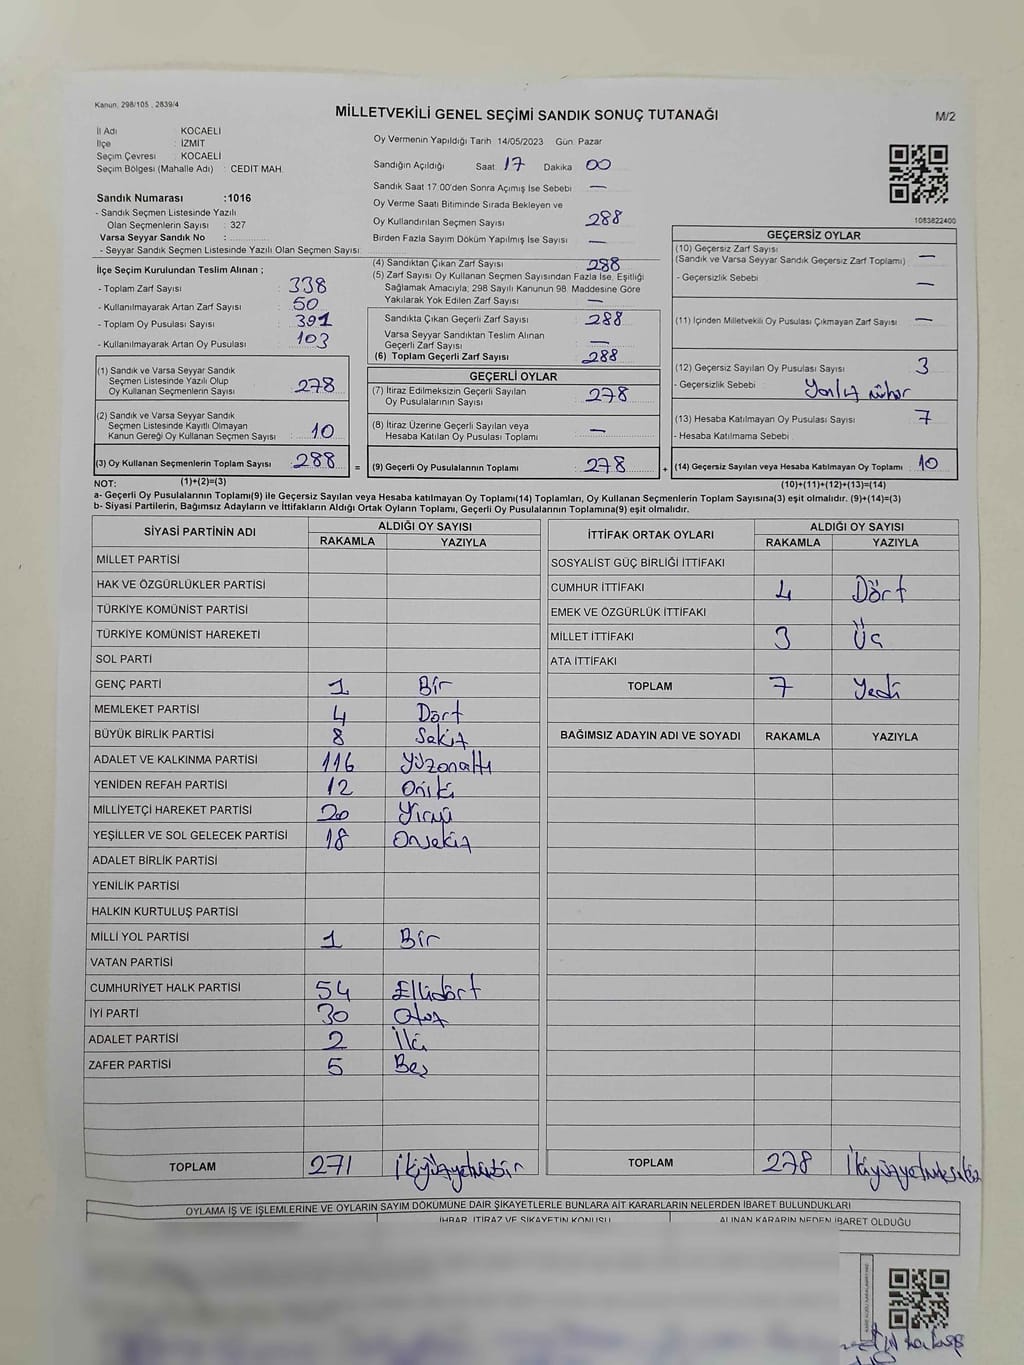 Kanun, 298/105 , 2839/4
MİLLETVEKİLİ GENEL SEÇİMİ SANDIK SONUÇ TUTANAĞI
M/2
İl Adı : KOCAELİ
İlçe : İZMİT
Seçim Çevresi : KOCAELİ
Seçim Bölgesi (Mahalle Adı) : CEDIT MAH.
Sandık Numarası :1016
- Sandık Seçmen Listesinde Yazılı
Olan Seçmenlerin Sayısı : 327
Varsa Seyyar Sandık No :
- Seyyar Sandık Seçmen Listesinde Yazılı Olan Seçmen Sayısı:
İlçe Seçim Kurulundan Teslim Alınan ;
- Toplam Zarf Sayısı : 338
- Kullanılmayarak Artan Zarf Sayısı : 50
- Toplam Oy Pusulası Sayısı : 391
- Kullanılmayarak Artan Oy Pusulası : 103
(1) Sandık ve Varsa Seyyar Sandık
Seçmen Listesinde Yazılı Olup
Oy Kullanan Seçmenlerin Sayısı : 278
(2) Sandık ve Varsa Seyyar Sandık
Seçmen Listesinde Kayıtlı Olmayan
Kanun Gereği Oy Kullanan Seçmen Sayısı : 10
(3) Oy Kullanan Seçmenlerin Toplam Sayısı : 288 =
Oy Vermenin Yapıldığı Tarih 14/05/2023 Gün Pazar
Sandığın Açıldığı Saat 17 Dakika 00
Sandık Saat 17:00'den Sonra Açımış İse Sebebi —
Oy Verme Saati Bitiminde Sırada Bekleyen ve
Oy Kullandırılan Seçmen Sayısı 288
Birden Fazla Sayım Döküm Yapılmış İse Sayısı —
(4) Sandıktan Çıkan Zarf Sayısı 288
(5) Zarf Sayısı Oy Kullanan Seçmen Sayısından Fazla İse, Eşitliği
Sağlamak Amacıyla; 298 Sayılı Kanunun 98. Maddesine Göre
Yakılarak Yok Edilen Zarf Sayısı —
Sandıkta Çıkan Geçerli Zarf Sayısı : 288
Varsa Seyyar Sandıktan Teslim Alınan
Geçerli Zarf Sayısı : —
(6) Toplam Geçerli Zarf Sayısı : 288
GEÇERLİ OYLAR
(7) İtiraz Edilmeksizin Geçerli Sayılan
Oy Pusulalarının Sayısı : 278
(8) İtiraz Üzerine Geçerli Sayılan veya
Hesaba Katılan Oy Pusulası Toplamı : —
(9) Geçerli Oy Pusulalarının Toplamı : 278 +
1083822400
GEÇERSİZ OYLAR
(10) Geçersiz Zarf Sayısı
(Sandık ve Varsa Seyyar Sandık Geçersiz Zarf Toplamı) —
- Geçersizlik Sebebi —
(11) İçinden Milletvekili Oy Pusulası Çıkmayan Zarf Sayısı —
(12) Geçersiz Sayılan Oy Pusulası Sayısı 3
- Geçersizlik Sebebi
(13) Hesaba Katılmayan Oy Pusulası Sayısı 7
- Hesaba Katılmama Sebebi
(14) Geçersiz Sayılan veya Hesaba Katılmayan Oy Toplamı 10
NOT: (1)+(2)=(3) (10)+(11)+(12)+(13)=(14)
a- Geçerli Oy Pusulalarının Toplamı(9) ile Geçersiz Sayılan veya Hesaba katılmayan Oy Toplamı(14) Toplamları, Oy Kullanan Seçmenlerin Toplam Sayısına(3) eşit olmalıdır. (9)+(14)=(3)
b- Siyasi Partilerin, Bağımsız Adayların ve İttifakların Aldığı Ortak Oyların Toplamı, Geçerli Oy Pusulalarının Toplamına(9) eşit olmalıdır.
SİYASİ PARTİNİN ADI ALDIĞI OY SAYISI
RAKAMLA YAZIYLA
MİLLET PARTİSİ
HAK VE ÖZGÜRLÜKLER PARTİSİ
TÜRKİYE KOMÜNİST PARTİSİ
TÜRKİYE KOMÜNİST HAREKETİ
SOL PARTİ
GENÇ PARTİ 1 Bir
MEMLEKET PARTİSİ 4 Dört
BÜYÜK BİRLİK PARTİSİ 8 Sekiz
ADALET VE KALKINMA PARTİSİ 116 Yüzonaltı
YENİDEN REFAH PARTİSİ 12 Oniki
MİLLİYETÇİ HAREKET PARTİSİ 20 Yirmi
YEŞİLLER VE SOL GELECEK PARTİSİ 18 Onsekiz
ADALET BİRLİK PARTİSİ
YENİLİK PARTİSİ
HALKIN KURTULUŞ PARTİSİ
MİLLİ YOL PARTİSİ 1 Bir
VATAN PARTİSİ
CUMHURİYET HALK PARTİSİ 54 Ellidört
İYİ PARTİ 30 Otuz
ADALET PARTİSİ 2 İki
ZAFER PARTİSİ 5 Beş
TOPLAM 271 İkiyüzyetmişbir
İTTİFAK ORTAK OYLARI ALDIĞI OY SAYISI
RAKAMLA YAZIYLA
SOSYALİST GÜÇ BİRLİĞİ İTTİFAKI
CUMHUR İTTİFAKI 4 Dört
EMEK VE ÖZGÜRLÜK İTTİFAKI
MİLLET İTTİFAKI 3 Üç
ATA İTTİFAKI
TOPLAM 7 Yedi
BAĞIMSIZ ADAYIN ADI VE SOYADI RAKAMLA YAZIYLA
TOPLAM 278 İkiyüzyetmişsekiz
OYLAMA İŞ VE İŞLEMLERİNE VE OYLARIN SAYIM DÖKÜMÜNE DAİR ŞİKAYETLERLE BUNLARA AİT KARARLARIN NELERDEN İBARET BULUNDUKLARI
İHBAR, İTİRAZ VE ŞİKAYETİN KONUSU ALINAN KARARIN NEDEN İBARET OLDUĞU